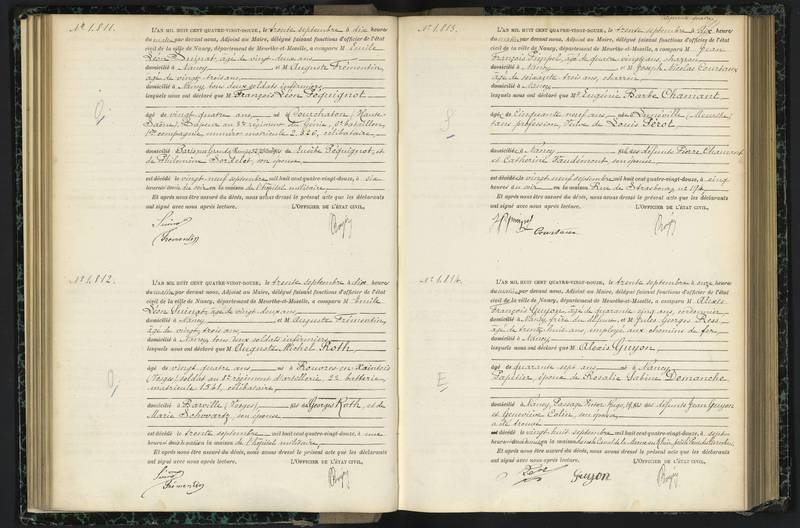 No 1.811.
L'AN MIL HUIT CENT QUATRE-VINGT-DOUZE, le trente septembre à dix heures
du matin, par devant nous, Adjoint au Maire, délégué faisant fonctions d'officier de l'état
civil de la ville de Nancy, département de Meurthe-et-Moselle, a comparu M Emile
Léon Suinot, âgé de vingt deux ans
domicilié à Nancy et M Auguste Frémentin,
âgé de vingt trois ans
domicilié à Nancy tous deux soldats infirmiers
lesquels nous ont déclaré que M François Léon Péquignot
âgé de vingt quatre ans né à Courchaton (Haute-
Saône) Sapeur au régiment Génie, bataillon,
compagnie numéro matricule célibataire
domicilié à de Emile Péquignot, et
de Philomène son épouse
est décédé le vingt neuf septembre mil huit cent quatre-vingt-douze, à six
heures du soir en la maison de l'hôpital militaire,
Et après nous être assuré du décès, nous avons dressé le présent acte que les déclarants
ont signé avec nous après lecture. L'OFFICIER DE L'ÉTAT CIVIL,
Suinot
Frémentin
No 1.812.
L'AN MIL HUIT CENT QUATRE-VINGT-DOUZE, le trente septembre à dix heures
du matin, par devant nous, Adjoint au Maire, délégué faisant fonctions d'officier de l'état
civil de la ville de Nancy, département de Meurthe-et-Moselle, a comparu M Emile
Léon Suinot, âgé de vingt deux ans
domicilié à Nancy et M Auguste Frémentin,
âgé de vingt trois ans
domicilié à Nancy tous deux soldats infirmiers
lesquels nous ont déclaré que M Auguste Michel Roth
âgé de vingt quatre ans né à Rouvres-en-Xaintois
(Vosges) soldat au régiment d'artillerie, batterie
matricule célibataire
domicilié à Barville (Vosges) fils de Georges Roth, et de
Marie Schwartz son épouse
est décédé le trente septembre mil huit cent quatre-vingt-douze, à une
heure en la maison de l'hôpital militaire,
Et après nous être assuré du décès, nous avons dressé le présent acte que les déclarants
ont signé avec nous après lecture. L'OFFICIER DE L'ÉTAT CIVIL,
Suinot
Frémentin
No 1.813.
L'AN MIL HUIT CENT QUATRE-VINGT-DOUZE, le trente septembre à dix heures
du matin, par devant nous, Adjoint au Maire, délégué faisant fonctions d'officier de l'état
civil de la ville de Nancy, département de Meurthe-et-Moselle, a comparu M Jean
François âgé de quatre vingt ans, charron
domicilié à Nancy et M Joseph Nicolas Courtaux
âgé de soixante trois ans, charron
domicilié à Nancy
lesquels nous ont déclaré que Me Eugénie Barbe Chamant
âgée de cinquante neuf ans née à Lunéville (Meurthe)
sans profession, Veuve de Louis Pérot
domiciliée à Nancy fille des défunts Pierre Chamant
et Catherine Vaudémont, son épouse
est décédée le vingt neuf septembre mil huit cent quatre-vingt-douze, à cinq
heures du soir en la maison Rue de Strasbourg no
Et après nous être assuré du décès, nous avons dressé le présent acte que les déclarants
ont signé avec nous après lecture. L'OFFICIER DE L'ÉTAT CIVIL,
Courtaux
No 1.814.
L'AN MIL HUIT CENT QUATRE-VINGT-DOUZE, le trente septembre à onze heures
du matin, par devant nous, Adjoint au Maire, délégué faisant fonctions d'officier de l'état
civil de la ville de Nancy, département de Meurthe-et-Moselle, a comparu M Alexis
François Guyon, âgé de quarante cinq ans, cordonnier
domicilié à Nancy, frère du défunt et M Jules Georges
âgé de trente huit ans, employé aux chemins de fer
domicilié à Nancy
lesquels nous ont déclaré que M Alexis Guyon
âgé de quarante sept ans né à Nancy
Papetier, époux de Rosalie Sabine Demanche
domicilié à Nancy, Passage fils des défunts Jean Guyon
et Geneviève Colin, son épouse
a été trouvé
est décédé le vingt huit septembre mil huit cent quatre-vingt-douze, à sept
heures en la maison
Et après nous être assuré du décès, nous avons dressé le présent acte que les déclarants
ont signé avec nous après lecture. L'OFFICIER DE L'ÉTAT CIVIL,
Guyon
E